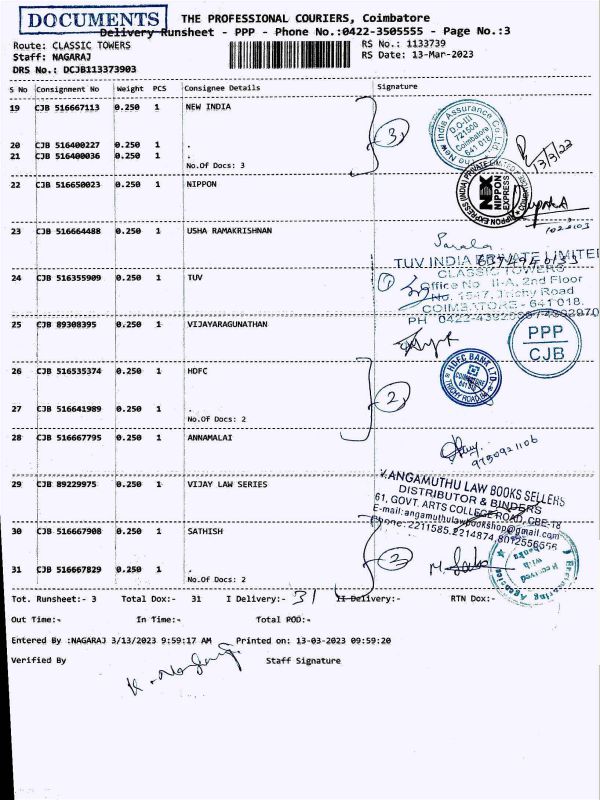 DOCUMENTS
THE PROFESSIONAL COURIERS, Coimbatore
Delivery Runsheet - PPP - Phone No.:0422-3505555 - Page No.:3
Route: CLASSIC TOWERS
RS No.: 1133739
Staff: NAGARAJ
RS Date: 13-Mar-2023
DRS No.: DCJB113373903
S No Consignment No Weight PCS Consignee Details Signature
19 CJB 516667113 0.250 1 NEW INDIA
20 CJB 516400227 0.250 1 .
21 CJB 516400036 0.250 1 .
No.Of Docs: 3
3
The New India Assurance Co Ltd
D.O-III
721500
Coimbatore
641 018
13/3/23
22 CJB 516650023 0.250 1 NIPPON
NIPPON EXPRESS (INDIA) PRIVATE LIMITED
NEX
NIPPON
EXPRESS
23 CJB 516664488 0.250 1 USHA RAMAKRISHNAN
Sarala
TUV INDIA PRIVATE LIMITED
CLASSIC TOWERS
Office No II-A, 2nd Floor
No. 1547, Trichy Road
COIMBATORE - 641 018.
24 CJB 516355909 0.250 1 TUV
1
25 CJB 89308395 0.250 1 VIJAYARAGUNATHAN
PPP
CJB
26 CJB 516535374 0.250 1 HDFC
HDFC BANK LTD.
COIMBATORE
TRICHY ROAD
27 CJB 516641989 0.250 1 .
No.Of Docs: 2
2
28 CJB 516667795 0.250 1 ANNAMALAI
9750921106
29 CJB 89229975 0.250 1 VIJAY LAW SERIES
V.ANGAMUTHU LAW BOOKS SELLERS
DISTRIBUTOR & BINDERS
61, GOVT. ARTS COLLEGE ROAD, CBE-18
E-mail:angamuthulawbookshop@gmail.com
Phone: 2211585, 2214874, 8012556556
30 CJB 516667908 0.250 1 SATHISH
31 CJB 516667829 0.250 1 .
No.Of Docs: 2
2
Tot. Runsheet:- 3 Total Dox:- 31 I Delivery:- 31 II Delivery:- RTN Dox:-
Out Time:- In Time:- Total POD:-
Entered By :NAGARAJ 3/13/2023 9:59:17 AM Printed on: 13-03-2023 09:59:20
Verified By Staff Signature